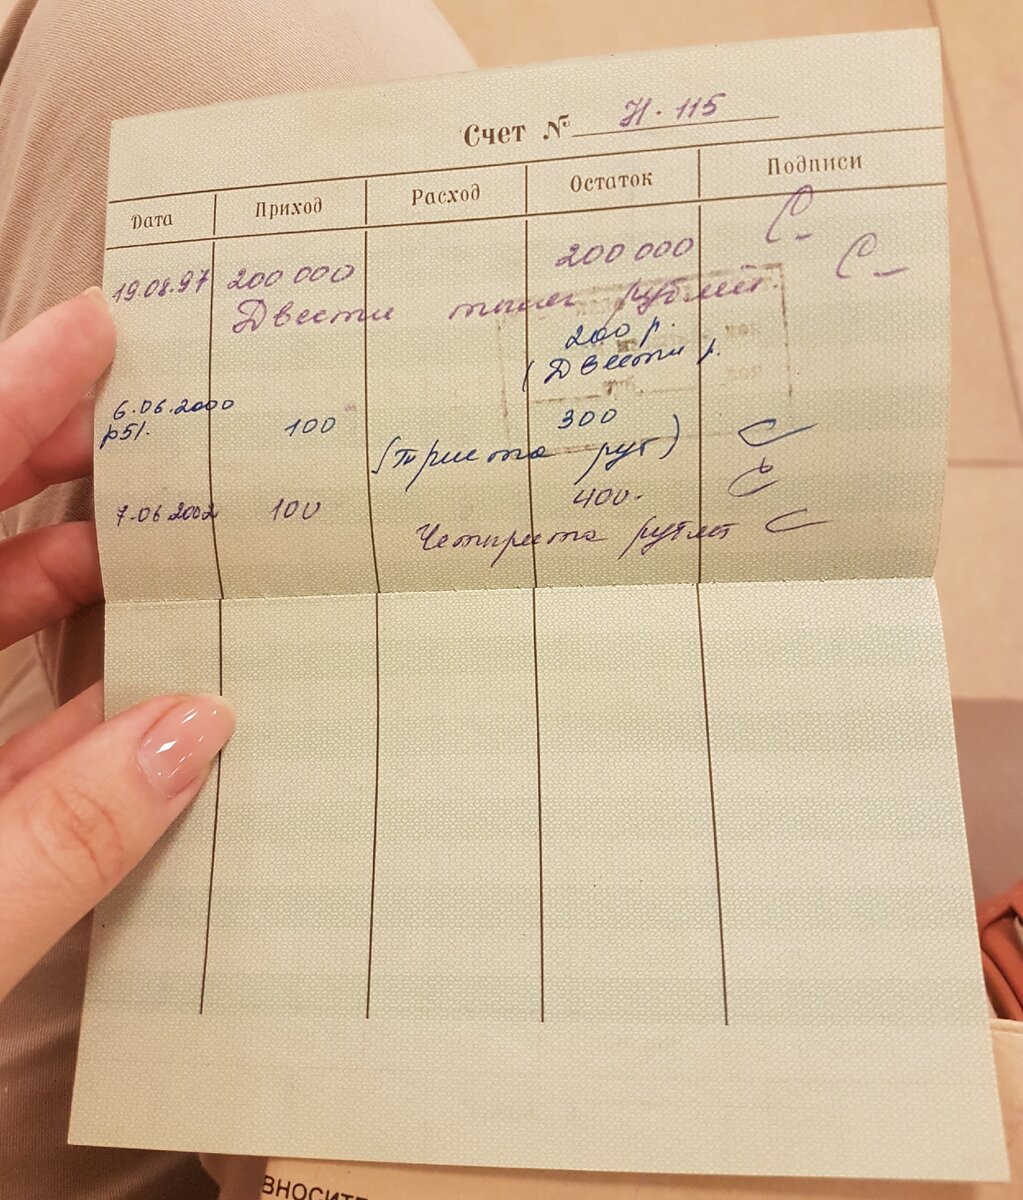 Счет № Н-115
Дата Приход Расход Остаток Подписи
19.08.97 200 000 200 000
Двести тысяч рублей
200 р.
(Двести р.
6.06.2000
р51. 100 300
(триста руб)
7.06 2002 100 400.
Четыреста рублей
ВНОСИТЕ